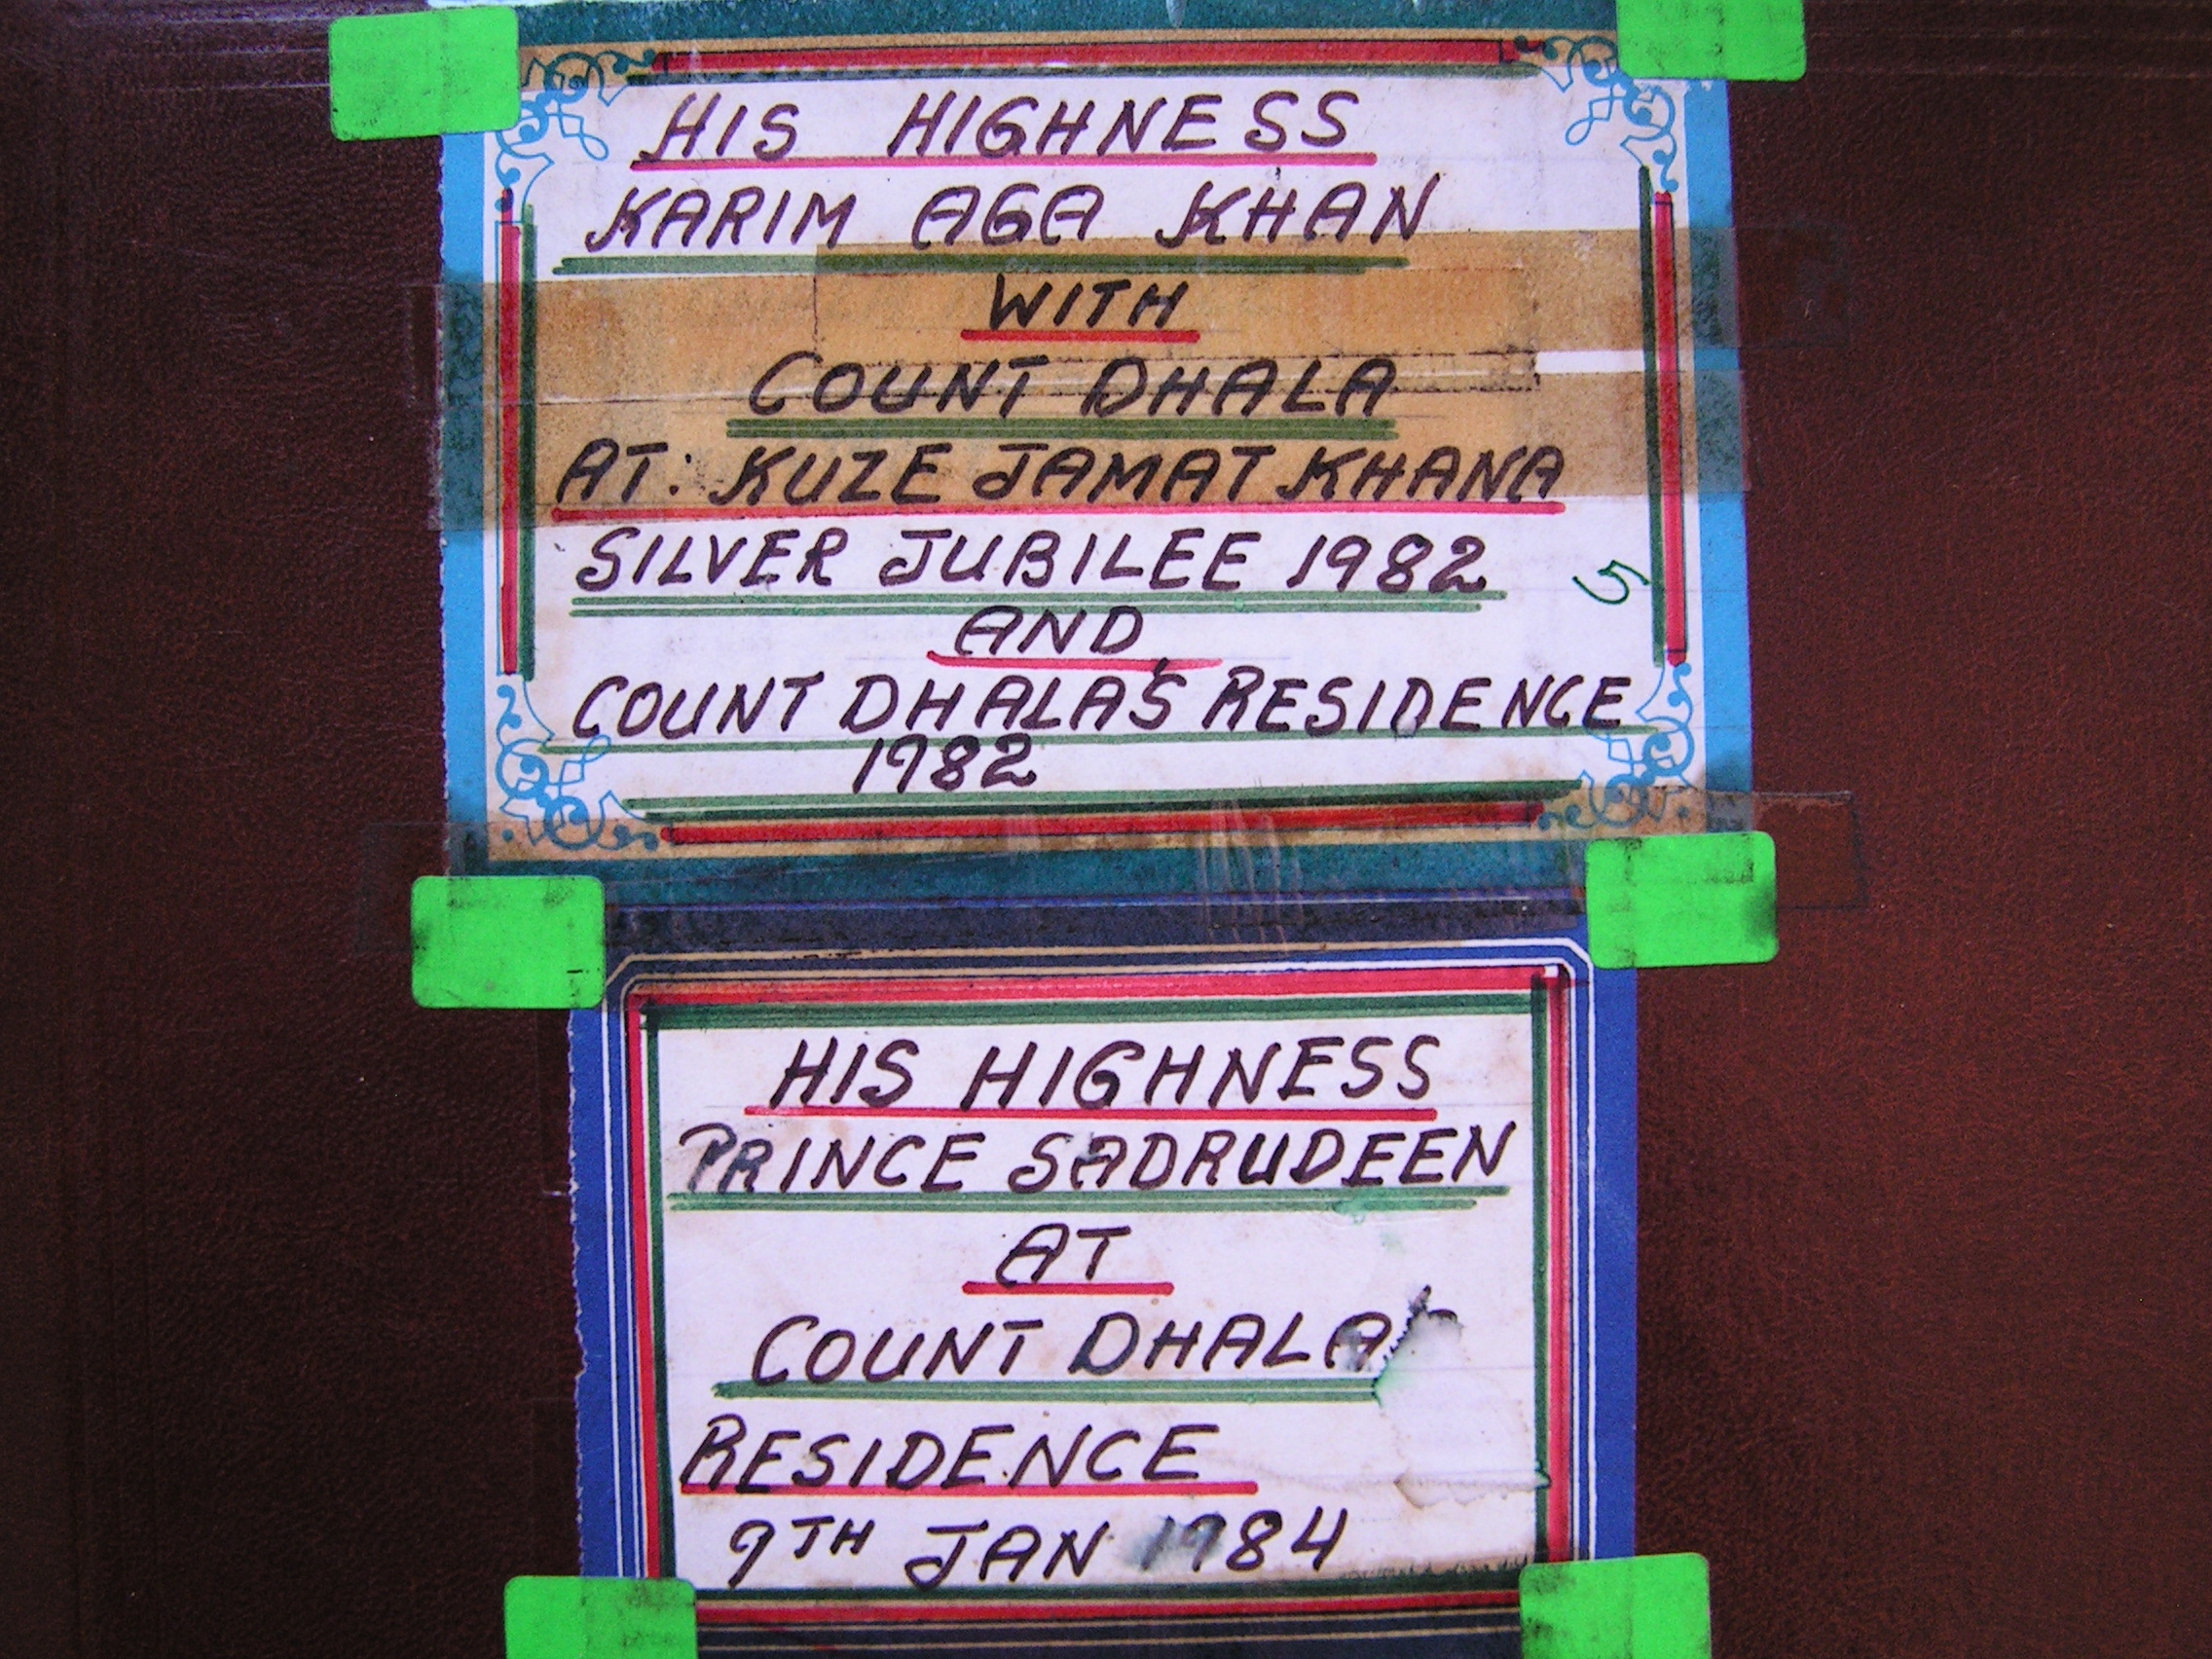 HIS HIGHNESS
KARIM AGA KHAN
WITH
COUNT DHALA
AT: KUZE JAMAT KHANA
SILVER JUBILEE 1982
5
AND
COUNT DHALA'S RESIDENCE
1982
HIS HIGHNESS
PRINCE SADRUDEEN
AT
COUNT DHALA
RESIDENCE
9TH JAN 1984